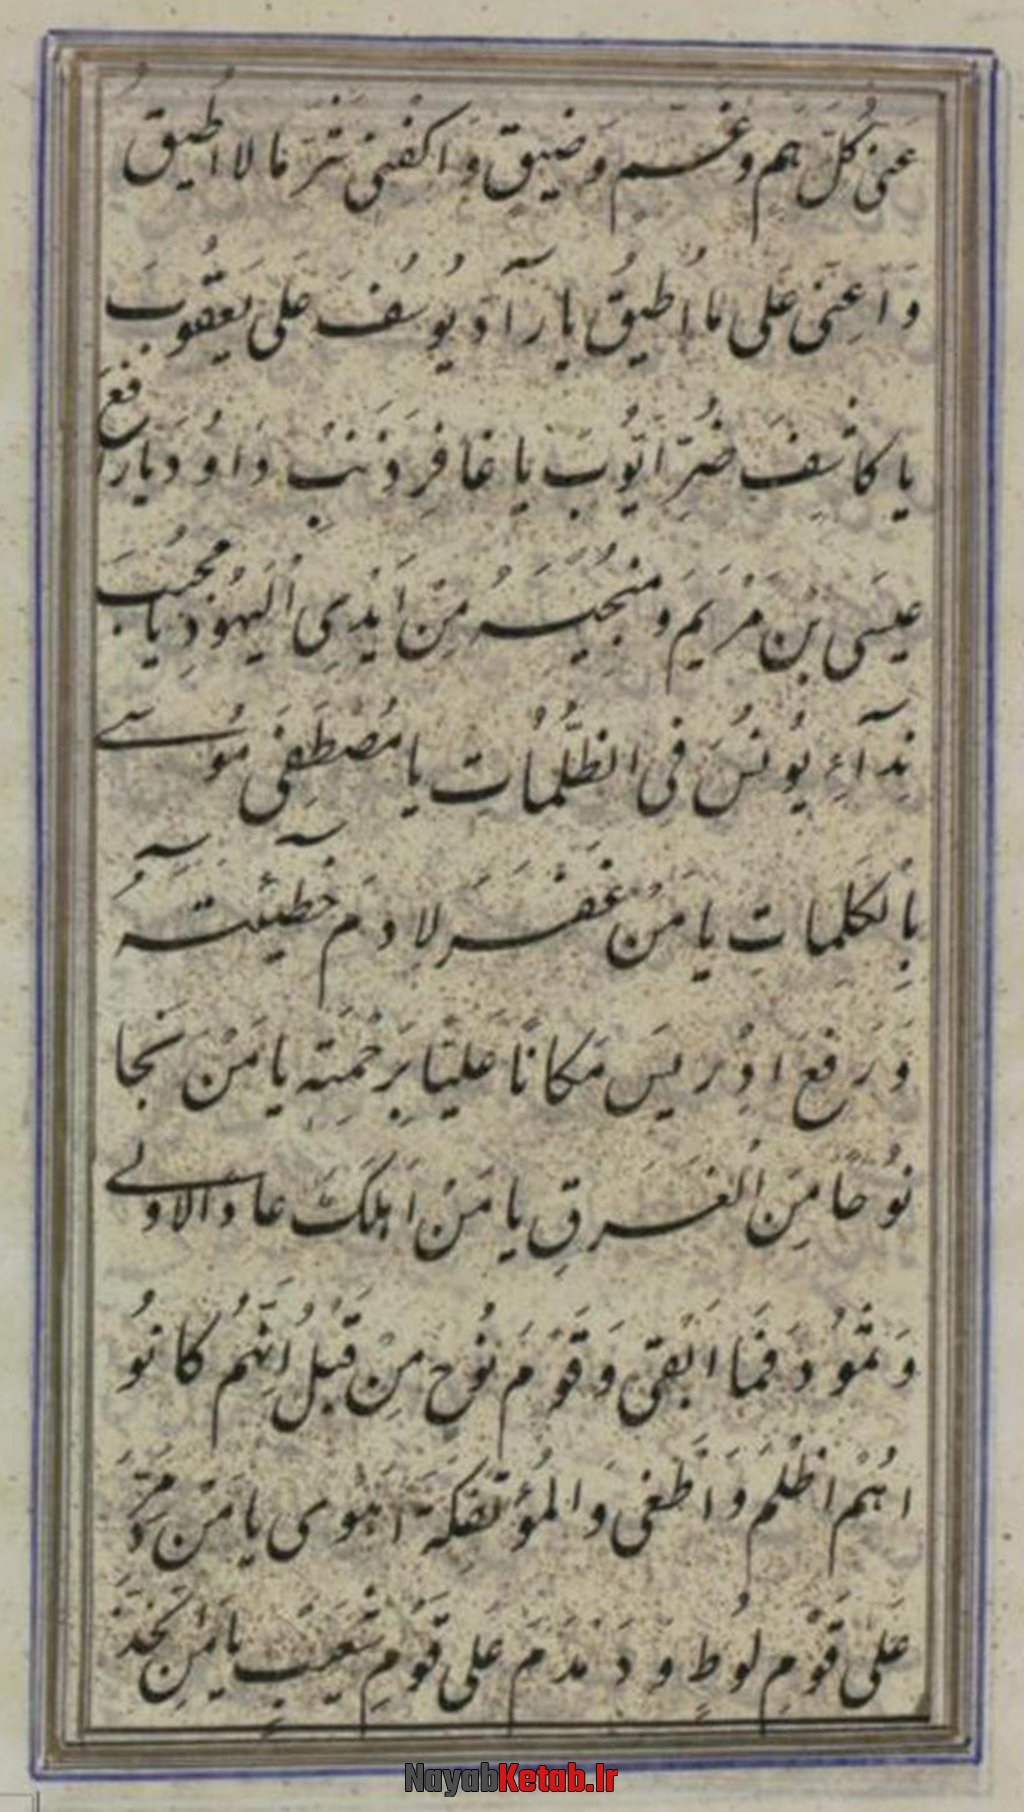 عَنّی کُلَّ هَمٍّ وَغَمٍّ وَضیقٍ وَاکْفِنی شَرَّ مَا لا اُطیقُ
وَاَعِنّی عَلی مَا اُطیقُ یا رآدَّ یُوسُفَ عَلی یَعْقُوبَ
یا کاشِفَ ضُرِّ اَیُّوبَ یا غافِرَ ذَنْبِ دَاوُدَ یا رافِعَ
عیسَی بْنَ مَرْیَمَ وَ مُنْجِیَهُ مِنْ اَیْدِی الْیَهُودِ یا مُجیبَ
نِدآءِ یُونُسَ فِی الظُّلُماتِ یا مُصْطَفِیَ مُوسے
بِالْکَلِماتِ یا مَنْ غَفَرَ لِادَمَ خَطیئَتَهُ
وَ رَفَعَ اِدْریسَ مَکاناً عَلِیّاً بِرَحْمَتِهِ یا مَنْ نَجا
نُوحاً مِنَ الْغَرَقِ یا مَنْ اَهْلَکَ عاد الاولے
وَثَمُودَ فَمَا اَبْقی وَقَوْمَ نُوحٍ مِنْ قَبْلُ اِنَّهُمْ کانُو
اهُمْ اَظْلَمَ وَاَطْغی وَالْمُؤْتَفِکَةَ اَهْوی یا مَنْ دَمَّرَ
عَلی قَوْمِ لُوطٍ وَ دَمْدَمَ عَلی قَوْمِ شُعَیْبٍ یا مَنِ اتَّخَذَ
NayabKetab.Ir